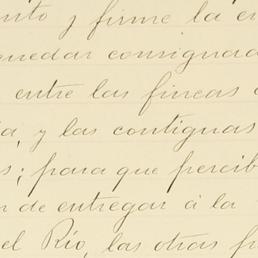 nto y firme la en
quedar consignad
entre las fincas
a, y las contiguas
s; para que percib
de entregar á la
el Río, las otras